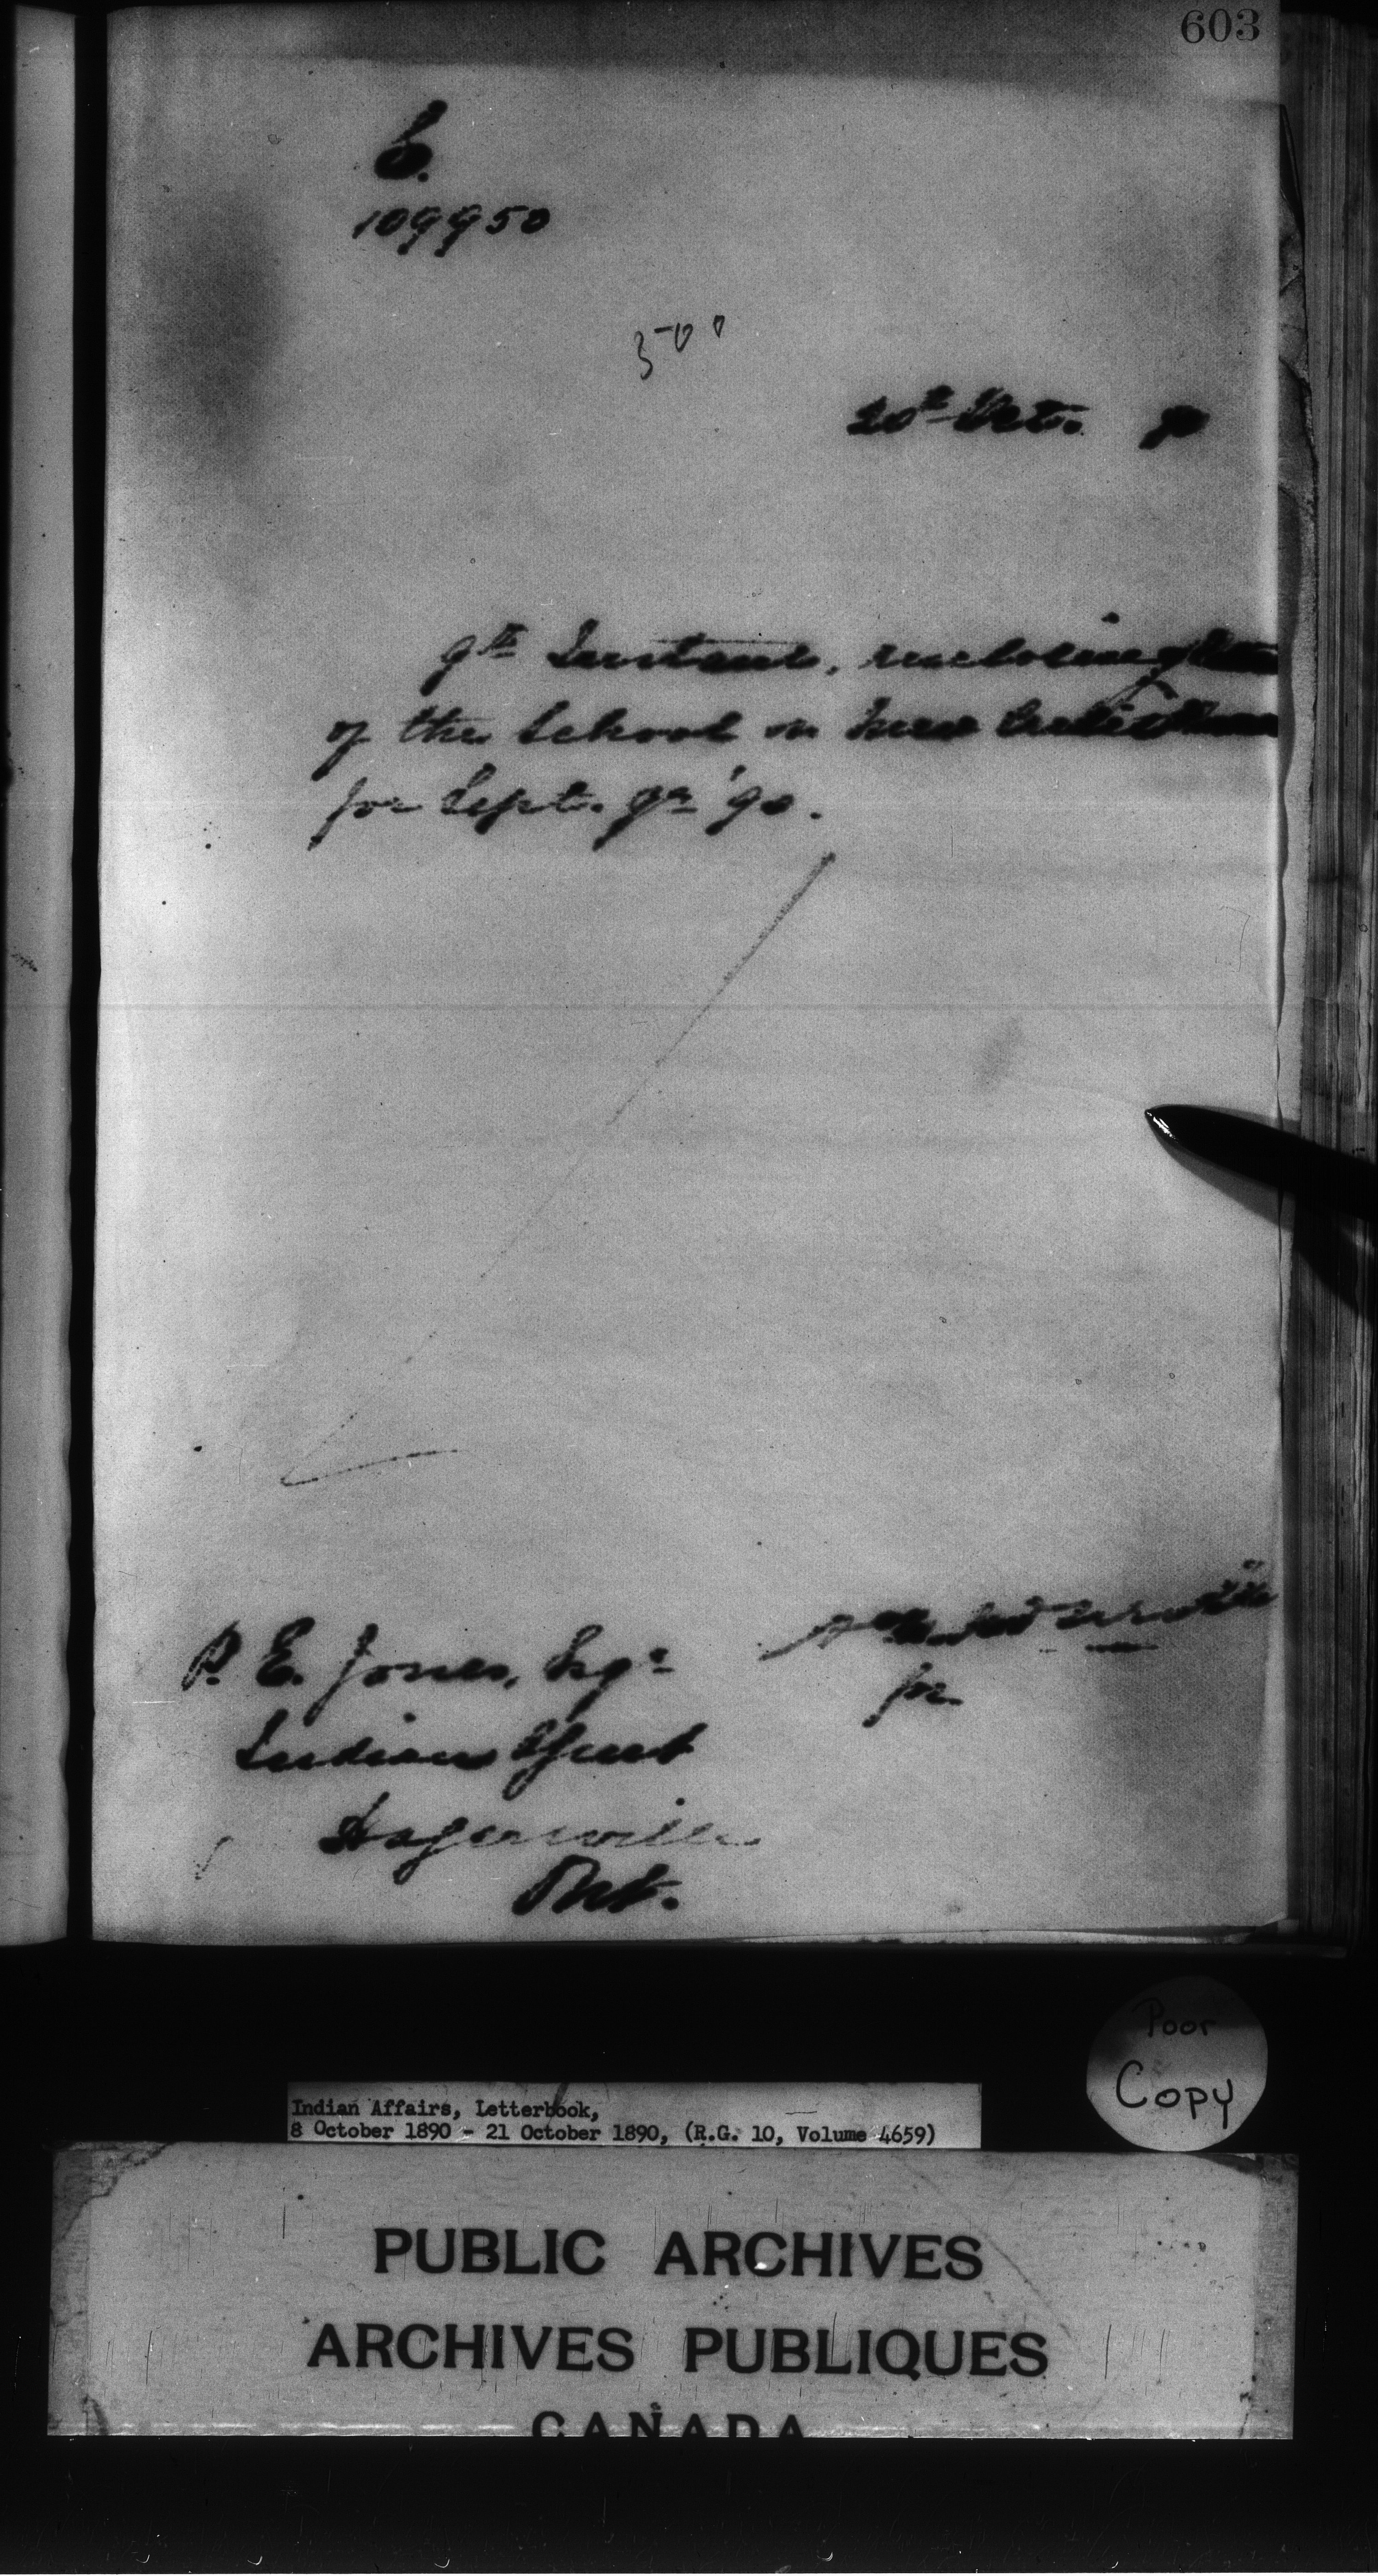 603
109950
500
20th Oct. 90
9th Instant, enclosing
of the School on New Credit
for Sept. qr '90.
P. E. Jones, Esqr
for
Indian Agent
Hagersville
Ont.
Poor
Copy
Indian Affairs, Letterbook,
8 October 1890 - 21 October 1890, (R.G. 10, Volume 4659)
PUBLIC ARCHIVES
ARCHIVES PUBLIQUES
CANADA